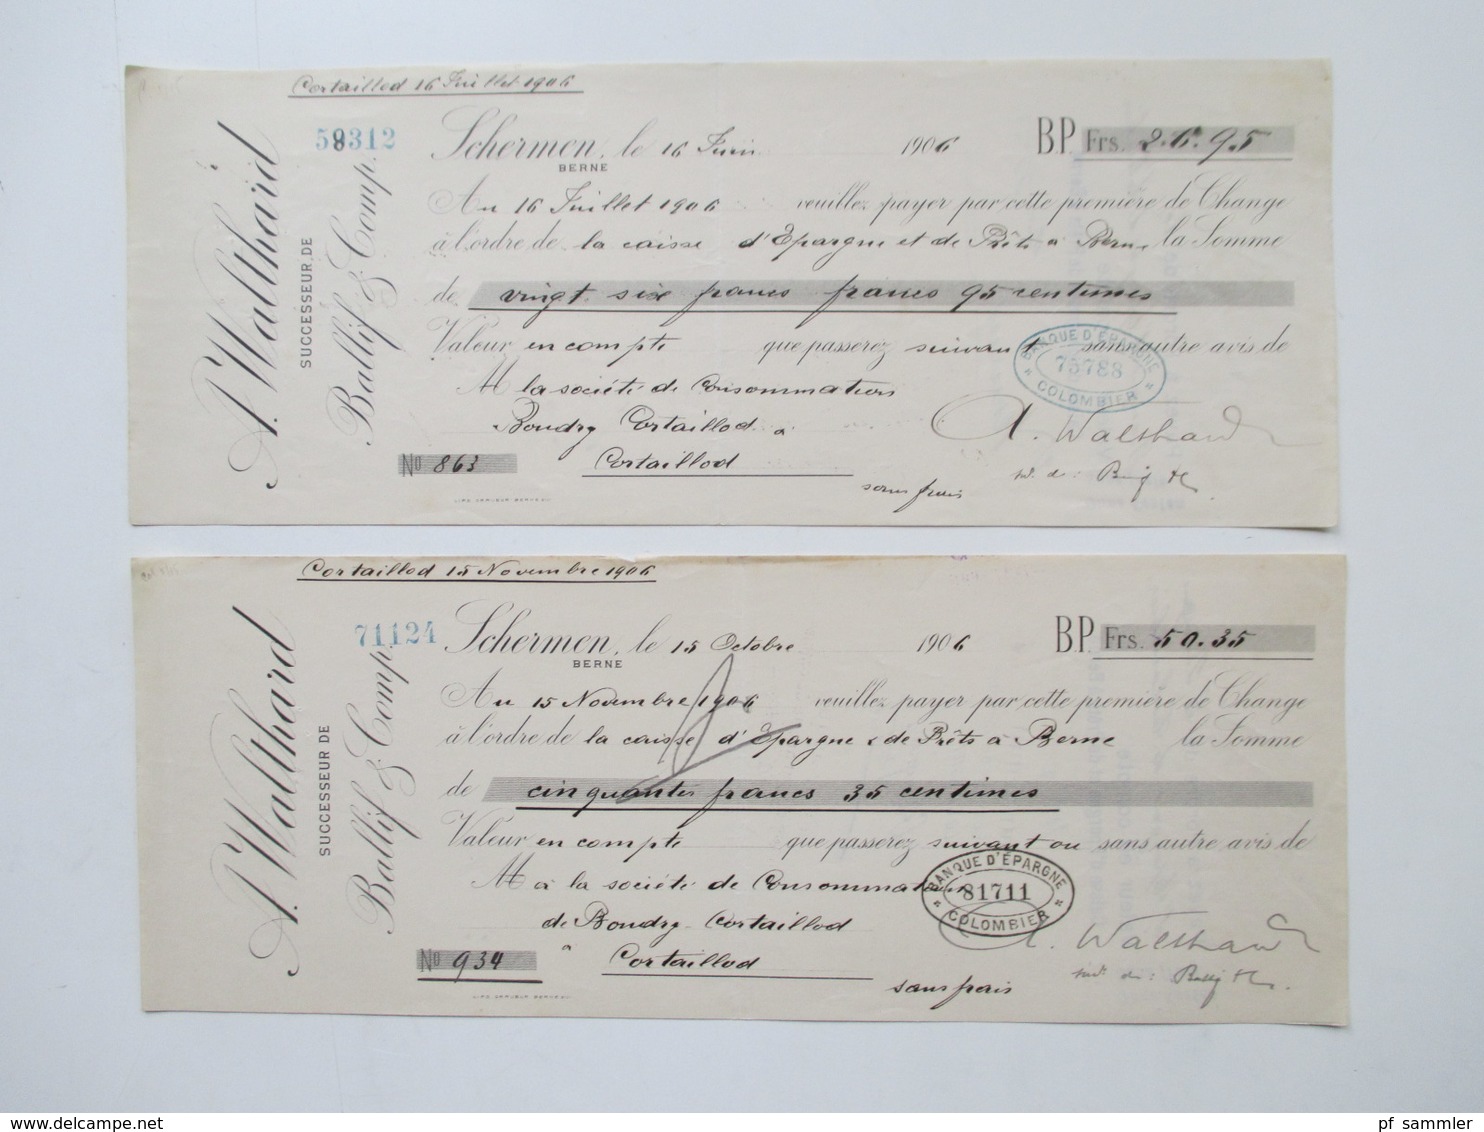 Cortaillod 16 Juillet 1906
59312
A. Walthard
SUCCESSEUR DE
Ballif & Comp.
Schermen, le 16 Juin 1906
BERNE
BP. Frs. 26.95
Au 16 Juillet 1906 veuillez payer par cette première de Change
à l'ordre de la caisse d'Epargne et de Prêts à Berne la Somme
de vingt six francs francs 95 centimes
Valeur en compte que passerez suivant sans autre avis de
BANQUE D'ÉPARGNE
75788
COLOMBIER
M la société de Consommation
Boudry Cortaillod à
A. Walthard
No 863
Cortaillod
sans frais
Cortaillod 15 Novembre 1906
71124
A. Walthard
SUCCESSEUR DE
Ballif & Comp.
Schermen, le 15 Octobre 1906
BERNE
B.P. Frs. 50.35
Au 15 Novembre 1906 veuillez payer par cette première de Change
à l'ordre de la caisse d'Epargne & de Prêts à Berne la Somme
de cinquante francs 35 centimes
Valeur en compte que passerez suivant ou sans autre avis de
BANQUE D'ÉPARGNE
81711
COLOMBIER
M à la société de Consommation
de Boudry-Cortaillod
A. Walthard
No 934
à Cortaillod
sans frais
delcampe.net
pf_sammler